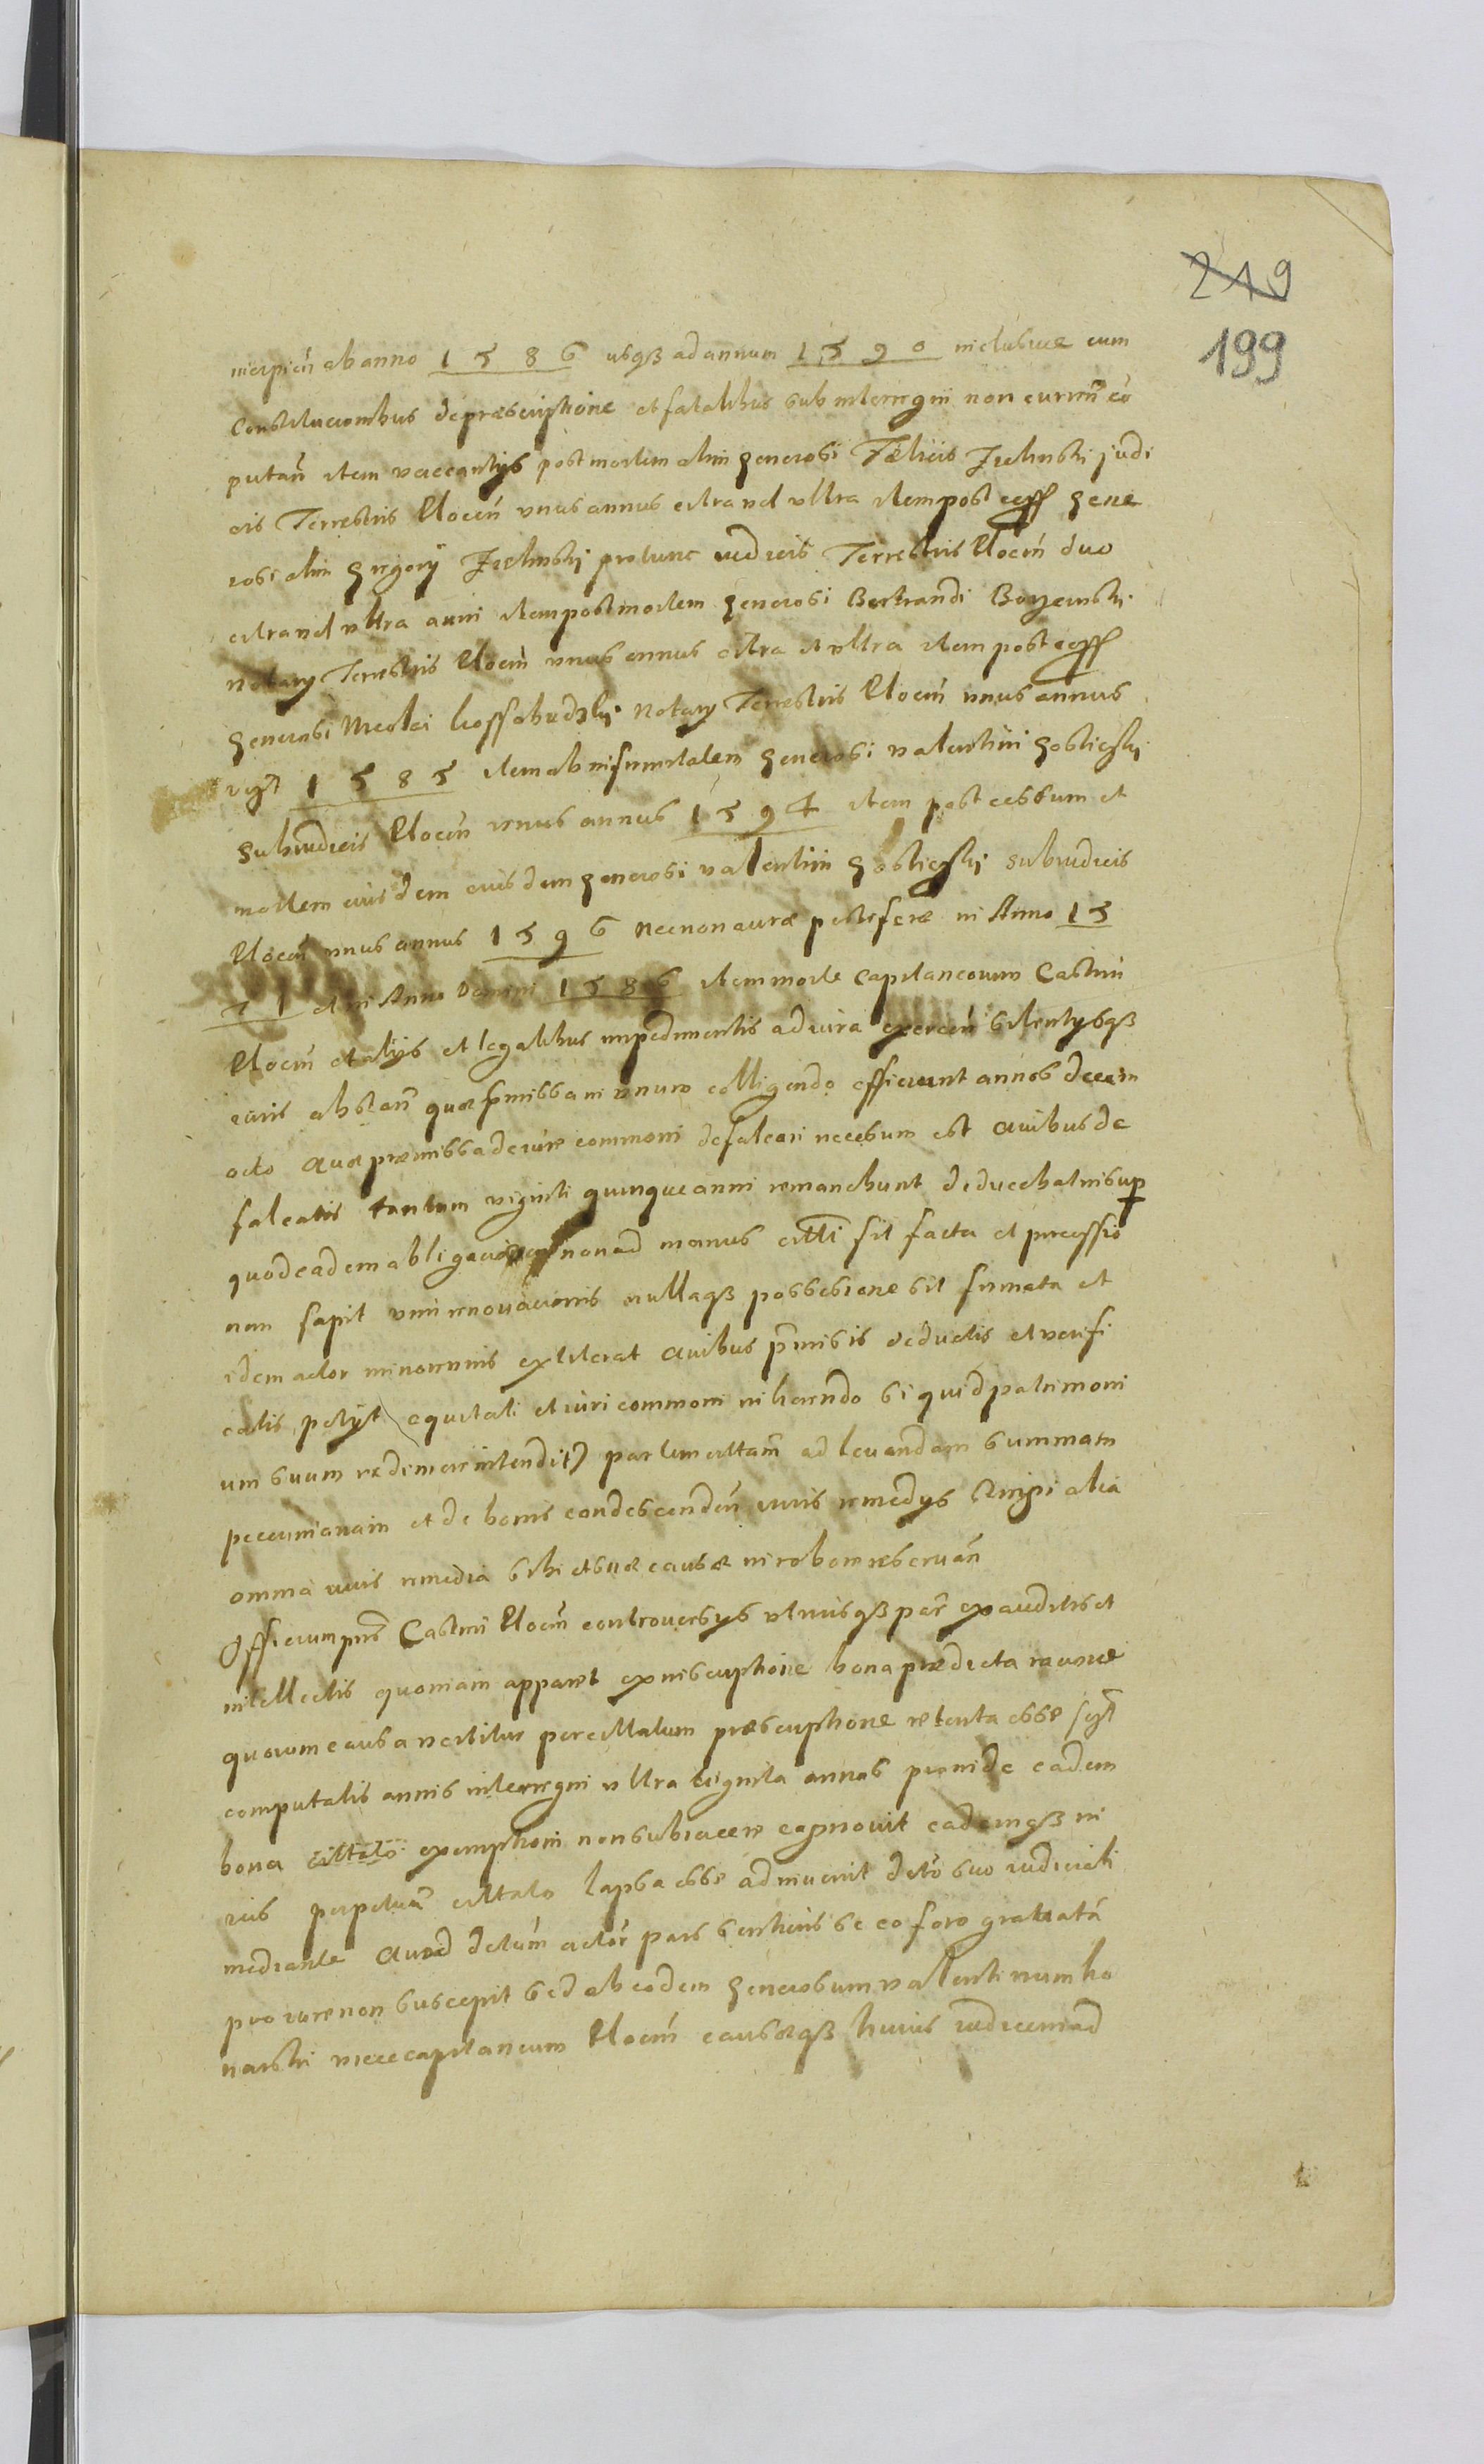 219
199
incipien̄ ab anno 1586 usqȝ ad annum 1590 inclusive cum
Constitucionibus de præscriptione et fatalibus sub interregni non curren̄ cō
putan̄ item vaccantijs post mortem olim generosi Fælicis Zielinski judi
cis Terrestris Plocen̄ unus annus citra vel ultra item post gene
rosi olim Gregorij Zielinskj protunc iudicis Terrestris Plocen̄ duo
citra vel ultra anni item post mortem generosi Bertrandi Boryewskj
notarij Terrestris Plocen̄ unus annus citra et ultra item post
generosi Nicolai Kossobudzkj Notarij Terrestris Plocen̄ unus annus
1585 item ab infirmitatem generosi Valentini
Subiudicis Plocen̄ unus annus 1594 item post cessum et
mortem eiusdem eiusdem generosi Valentini subiudicis
Plocen̄ unus annus 1596 Necnon auræ pestiferæ in Anno 15
71 et in Anno Domini 1586 item morte Capitaneorum Castrin̄
Plocen̄ et alijs et legalibus impedimentis ad iura exercen̄ silentijsqȝ
iuris abstan̄ quæ p̄missa in unum colligendo efficiunt annos decem
octo Quæ præmissa de iure commoni defalcari necesum est Quibus de
falcatis tantum viginti quinque anni remanebunt deducebat insup
quod eadem obligacio non ad manus sit facta et processio
non sapit vim renovacionis nullaqȝ possesione sit firmata et
idem actor minorennis extiterat Quibus p̄misis deductis et verifi
catis petijt equitati et iuri commoni inhærendo si quid patrimoni
um suum redimere intendit) partem cittatam ad levandam summam
pecuniariam et de bonis condescenden̄ iuris remedijs alia
omnia iuris remedia sibi et suæ causæ in robore reservan̄
Officium pn̄s Castren̄ Plocen̄ controversijs utriusqȝ par̄ exauditis et
intellectis quoniam apparet ex inscriptione bona prædicta racione
quorum causa vertitur per cittatum præscriptione retenta esse
computatis annis interregni ultra triginta annos proinde eadem
bona cittato exemptioni non subiacere cognovit eademqȝ in
ius perpetuū cittato lapsa esse adinvenit dēto suo iudiciali
mediante Quod dētum actor̄ pars sentiens se eo foro gravatā
pro iure non suscepit sed ab eodem generosum Valentinum ho
narski vicecapitaneum Plocen̄ causæqȝ huius iudicem ad